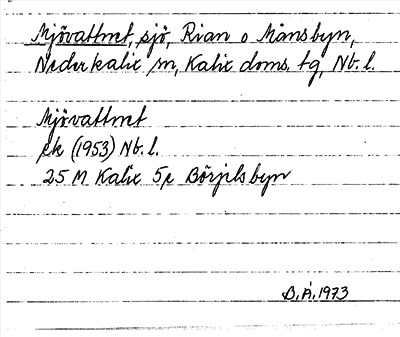 Mjövattnet, sjö, Rian o Månsbyn,
Nederkalix sn, Kalix doms. tg, Nb. l.
Mjövattnet
ek (1953) Nb. l.
25 M Kalix 5e Börjelsbyn
B.Å. 1973